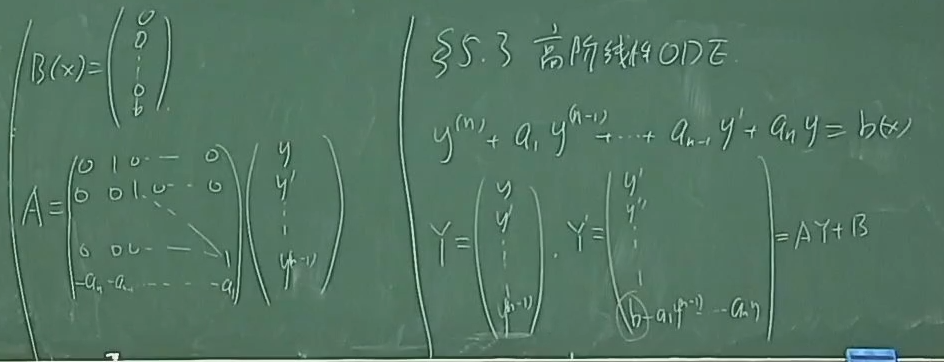 B(x) = \begin{pmatrix} 0 \\ 0 \\ \vdots \\ 0 \\ b \end{pmatrix}
A = \begin{pmatrix} 0 & 1 & 0 & \cdots & 0 \\ 0 & 0 & 1 & 0 \cdots & 0 \\ & & & \ddots & \\ 0 & 0 & 0 & \cdots & 1 \\ -a_n & -a_{n-1} & \cdots & & -a_1 \end{pmatrix} \begin{pmatrix} y \\ y' \\ \vdots \\ y^{(n-1)} \end{pmatrix}
§5.3 高阶线性ODE.
y^{(n)} + a_1 y^{(n-1)} + \cdots + a_{n-1} y' + a_n y = b(x)
Y = \begin{pmatrix} y \\ y' \\ \vdots \\ y^{(n-1)} \end{pmatrix}. Y' = \begin{pmatrix} y' \\ y'' \\ \vdots \\ b - a_1 y^{(n-1)} - \cdots - a_n y \end{pmatrix} = AY + B